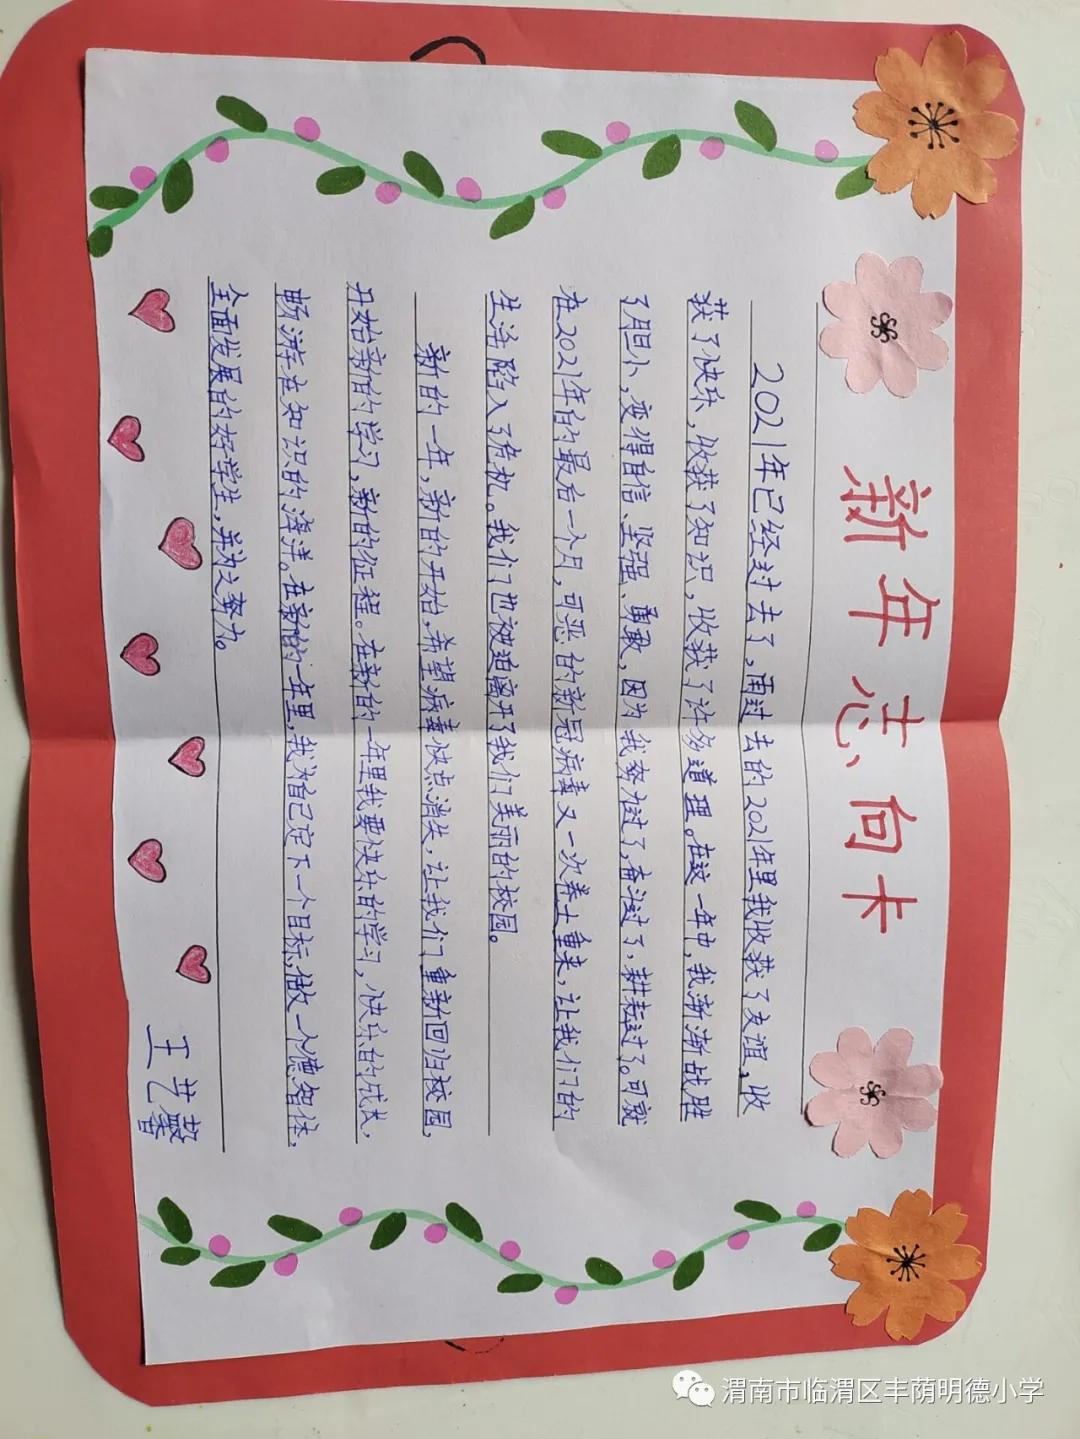 新年志向卡
2021年已经过去了,过去的2021年里我收获了友谊,收
获了快乐,收获了知识,收获了许多道理。在这一年中,我渐渐战胜
了胆小,变得自信、坚强、勇敢,因为我努力过了,奋斗过了,耕耘过了。可就
在2021年的最后一个月,可恶的新冠病毒又一次卷土重来,让我们的
生活陷入了危机。我们也被迫离开了我们美丽的校园。
新的一年,新的开始,希望病毒快点消失,让我们重新回归校园,
开始新的学习,新的征程。在新的一年里我要快乐的学习,快乐的成长,
畅游在知识的海洋。在新的一年里,我为自己定下一个目标,做一个德智体,
全面发展的好学生,并为之努力。
王艺馨
渭南市临渭区丰荫明德小学